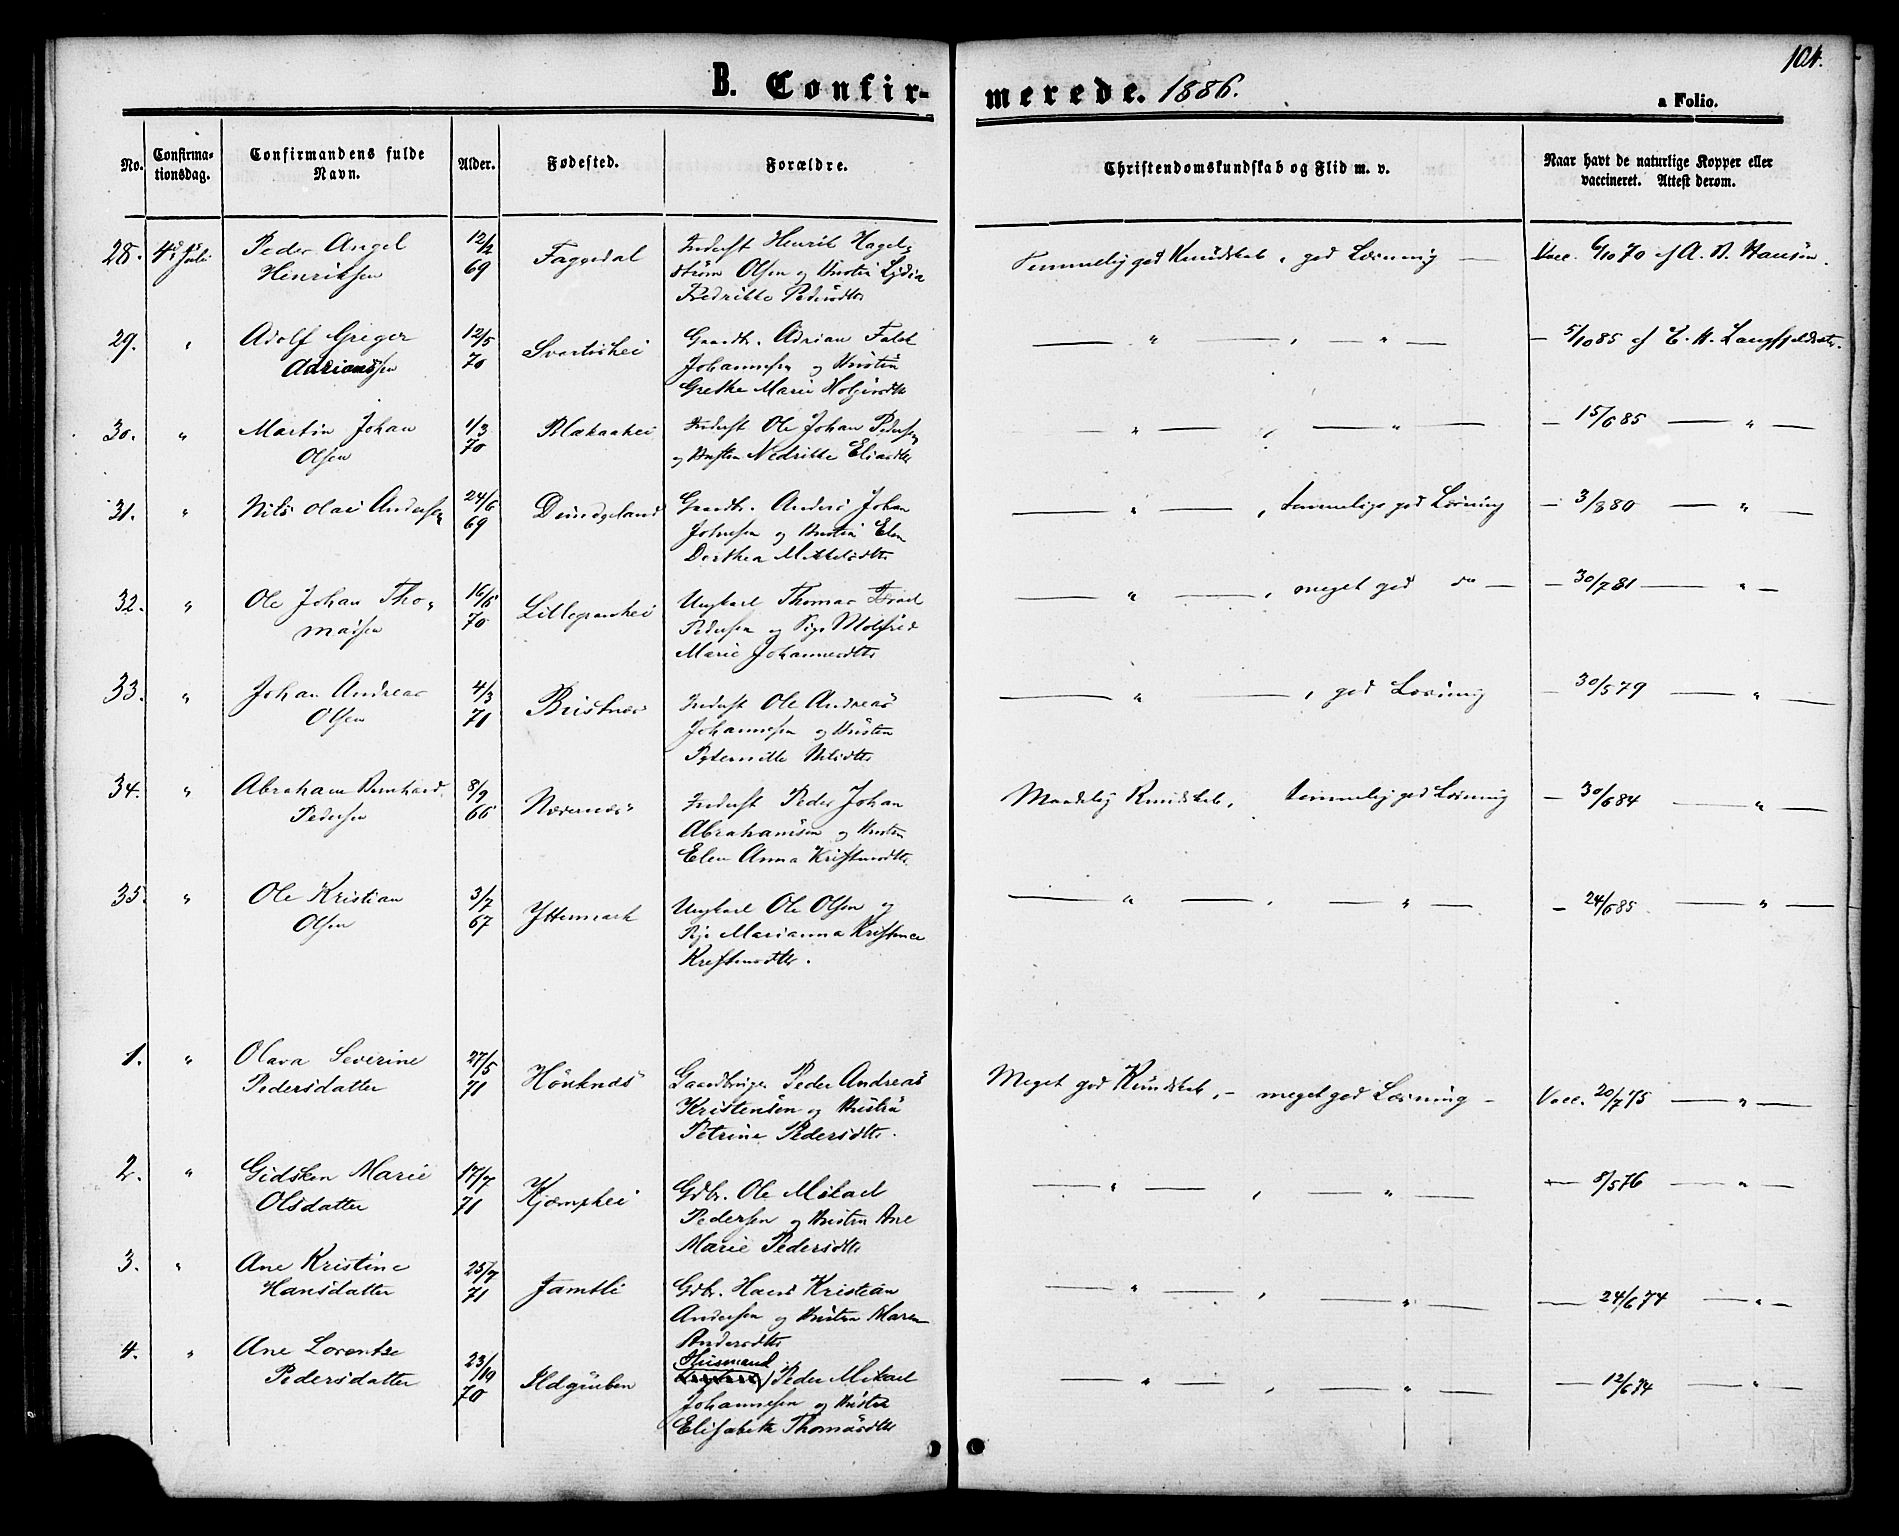 104.
B. Confir-
merede. 1886.
a Folio.
No.
Confirma-
tionsdag.
Confirmandens fulde
Navn.
Alder.
Fødested.
Forældre.
Christendomskundskab og Flid m. v.
Naar havt de naturlige Kopper eller
vaccineret. Attest derom.
28. 4d Juli Peder Angel 12/2 Fagerdal Inderst Henrik Hagel- Temmelig god Kundskab, god Læsning — Vacc. 6/10 70 af A. B. Hansen.
Henriksen 69 strøm Olsen og Hustru Lydia
Fredrikke Pedersdtr
29. " Adolf Greger 12/5 Svartishei Gaardbr. Adrian Falch — " — , — " — — 5/10 85 af E. H. Langfjeldæter.
Adrianssen 70 Johannesen og Hustru
Grethe Marie Holgersdtr
30. " Martin Johan 1/3 Blakaahei Inderst Ole Johan Pedersen — " — , — " — — 15/6 85 — " —
Olsen 70 og Hustru Nedrikke Eliasdtr
31. " Nils Olai Andersen 24/6 Dunderland Gaardbr. Anders Johan — " — , temmelig god Læsning — 3/8 80 — " —
69 Johnsen og Hustru Elen
Dorthea Mikkelsdtr
32. " Ole Johan Tho- 16/6 Lillegranhei Ungkarl Thomas — " — , meget god do — — 30/7 81 — " —
massen 70 Pedersen og Pige
Marie Johannesdtr
33. " Johan Andreas 4/3 Bustnes Inderst Ole Andreas — " — , god Læsning — 30/5 79 — " —
Olsen 71 Johannesen og Hustru
Peternille Nilsdtr
34. " Abraham Bernhard 8/9 Nævernes Inderst Peder Johan Maadelig Kundskab, temmelig god Læsning — 30/6 84 — " —
Pedersen 66 Abrahamsen og Hustru
Elen Anna Kristensdtr.
35. " Ole Kristian 3/7 Yttermark Ungkarl Ole Olsen og — " — , — " — — 24/6 85. — " —
Olsen 67 Pige Marianna Kristence
Kristensdtr.
1. " Olava Severine 27/5 Hauknes Gaardbruger Peder Andreas Meget god Kundskab, — meget god Læsning — Vacc. 20/7 75 — " —
Pedersdatter 71 Kristensen og Hustru
Petrine Pedersdtr.
2. " Gidsken Marie 17/7 Kjæmphei Gdbr. Ole Mikael — " — , — " — — 8/5 76 — " —
Olsdatter 71 Pedersen og Hustru Ane
Marie Pedersdtr
3. " Ane Kristine 25/7 Jamtli Gdbr. Hans Kristian — " — , — " — — 24/6 74 — " —
Hansdatter 71 Andersen og Hustru Maren
Andersdtr
4. " Ane Lorentze 23/10 Ildgruben Husmand — " — , — " — — 12/6 74 — " —
Pedersdatter 70 Peder Mikael
Johannesen og Hustru
Elisabeth Thomasdtr